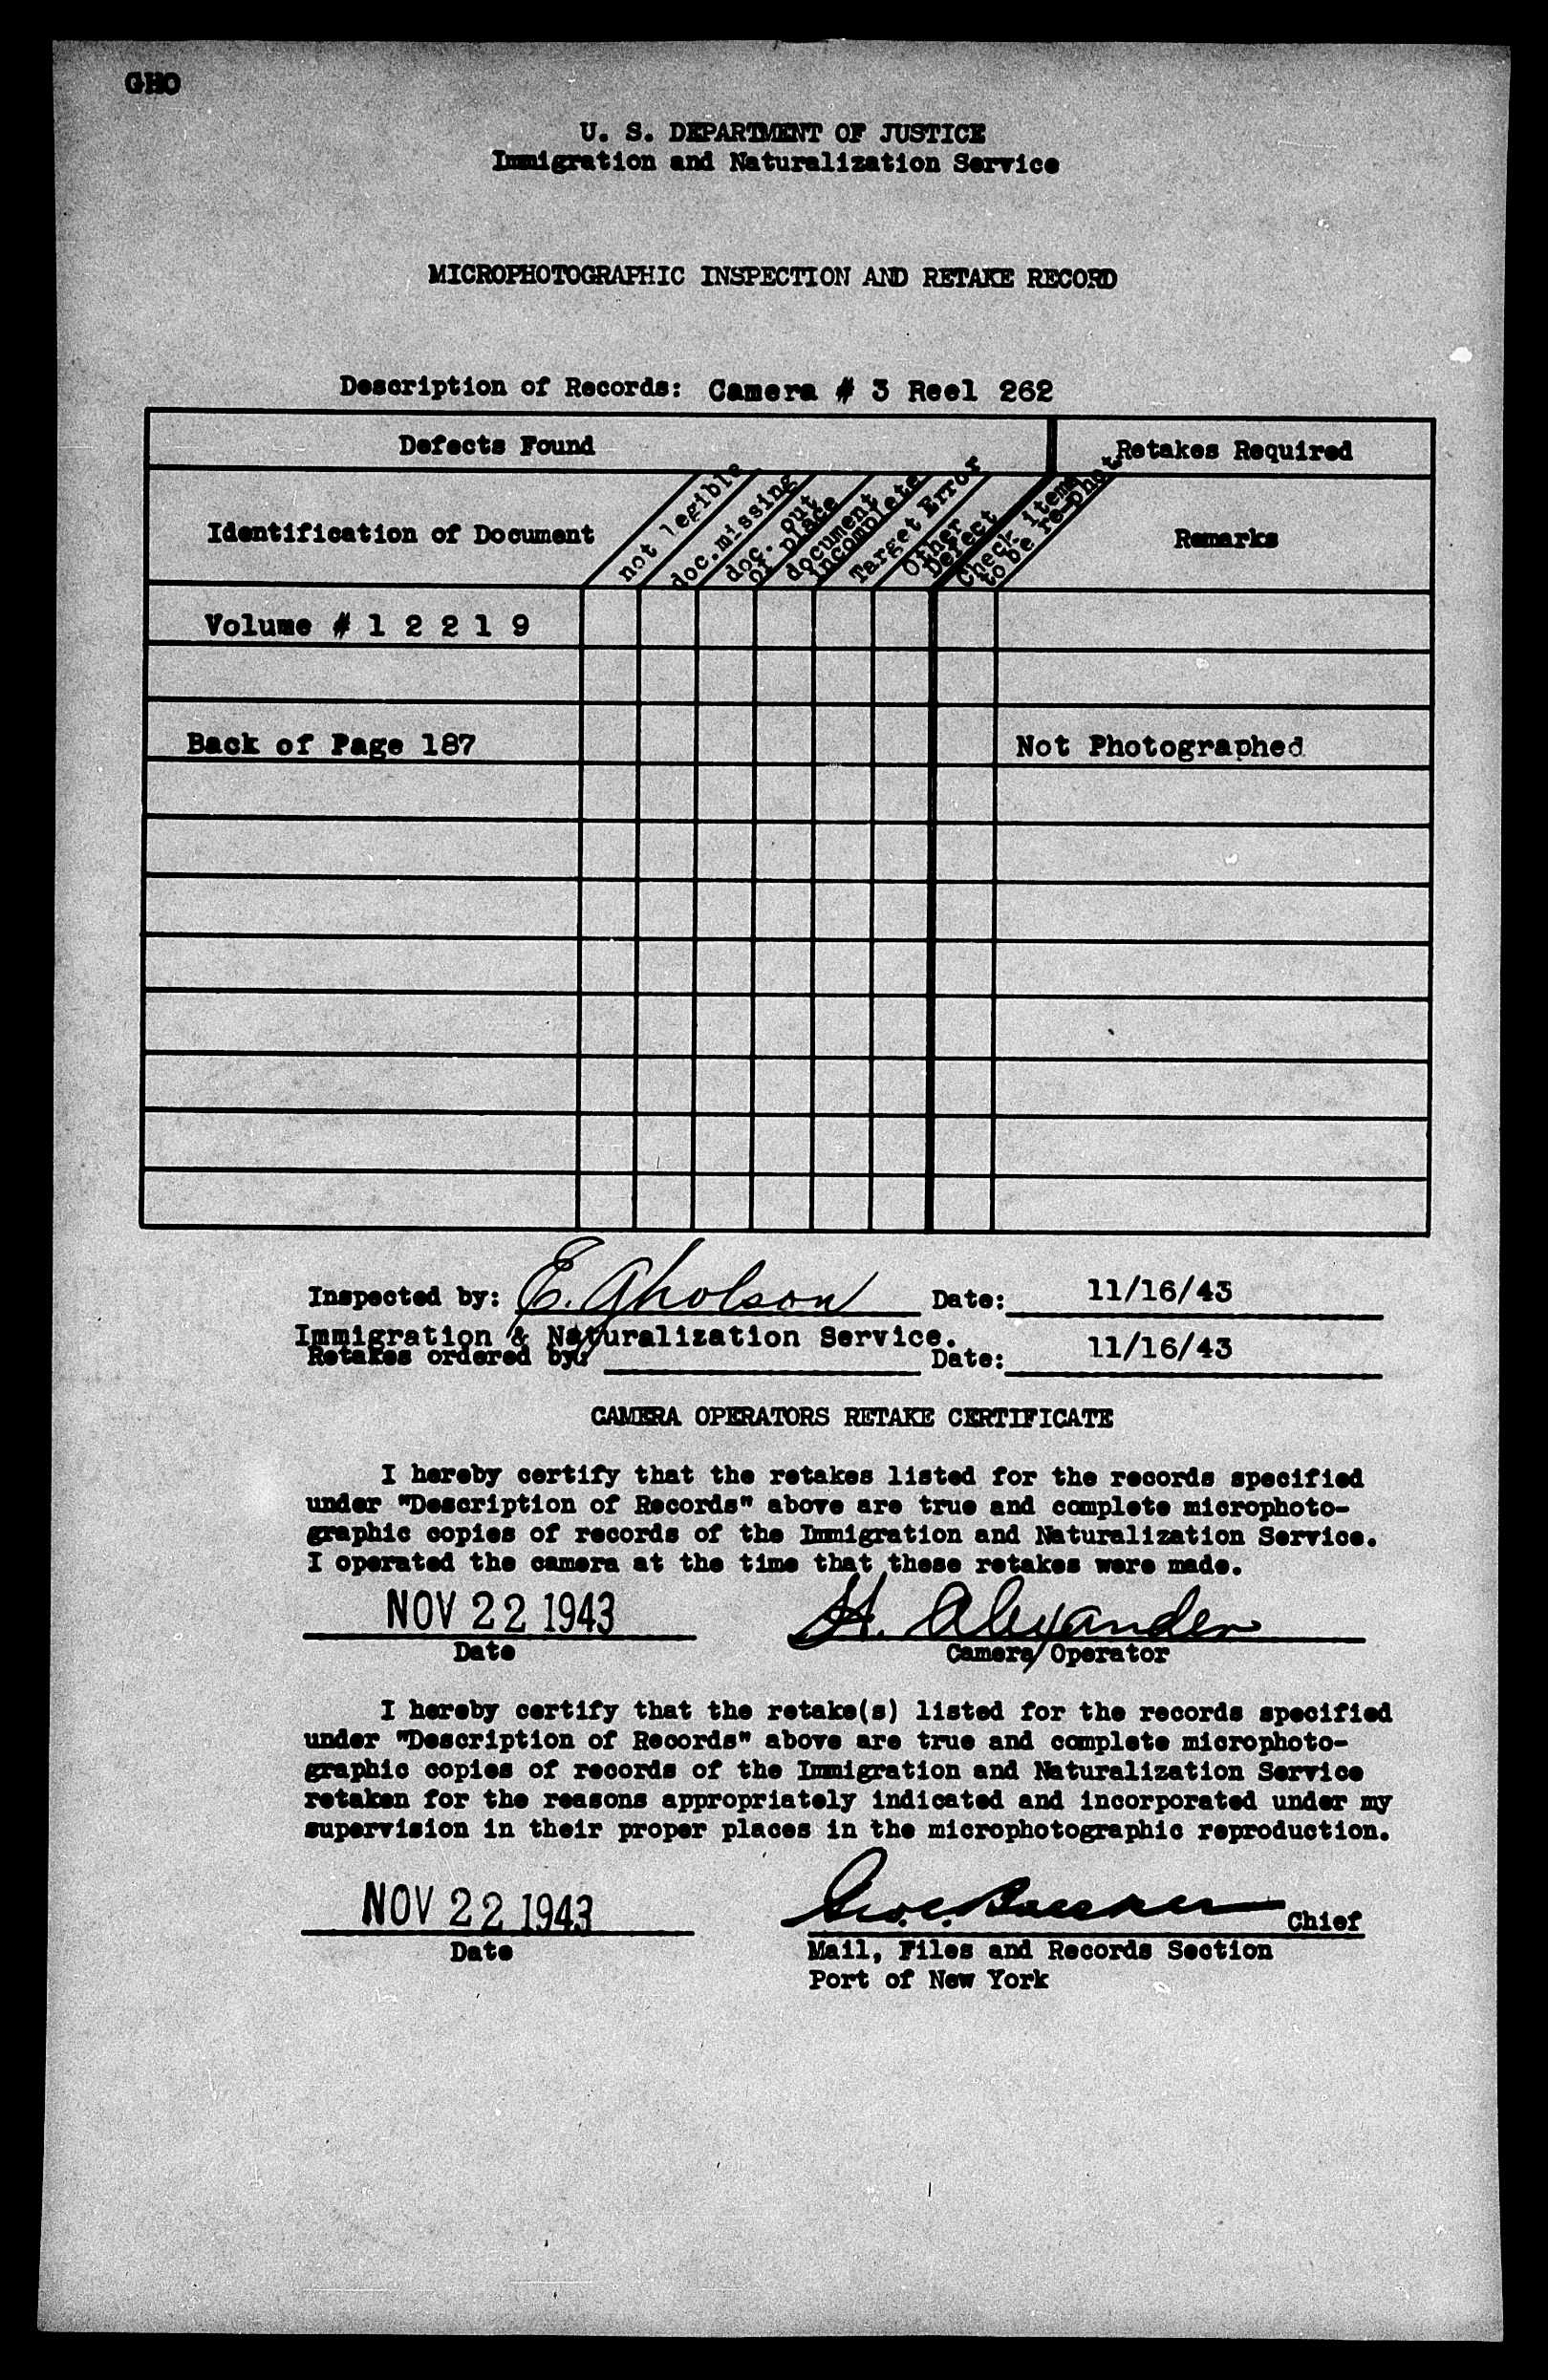 GHO
U. S. DEPARTMENT OF JUSTICE
Immigration and Naturalization Service
MICROPHOTOGRAPHIC INSPECTION AND RETAKE RECORD
Description of Records: Camera # 3 Reel 262
Defects Found
Retakes Required
Identification of Document
not legible
doc. missing
doc. out
of place
document
incomplete
Target Error
Other
Defect
Check item
to be re-phot
Remarks
Volume # 1 2 2 1 9
Back of Page 187 Not Photographed
Inspected by: E. Gholson Date: 11/16/43
Immigration & Naturalization Service.
Retakes ordered by: Date: 11/16/43
CAMERA OPERATORS RETAKE CERTIFICATE
I hereby certify that the retakes listed for the records specified
under "Description of Records" above are true and complete microphoto-
graphic copies of records of the Immigration and Naturalization Service.
I operated the camera at the time that these retakes were made.
NOV 22 1943 H. Alexander
Date Camera Operator
I hereby certify that the retake(s) listed for the records specified
under "Description of Records" above are true and complete microphoto-
graphic copies of records of the Immigration and Naturalization Service
retaken for the reasons appropriately indicated and incorporated under my
supervision in their proper places in the microphotographic reproduction.
NOV 22 1943 Chief
Date Mail, Files and Records Section
Port of New York